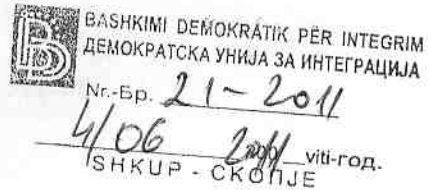 BASHKIMI DEMOKRATIK PËR INTEGRIM
ДЕМОКРАТСКА УНИЈА ЗА ИНТЕГРАЦИЈА
Nr.-Бр. 21-2011
4/06 2011 viti-год.
SHKUP - СКОПЈЕ